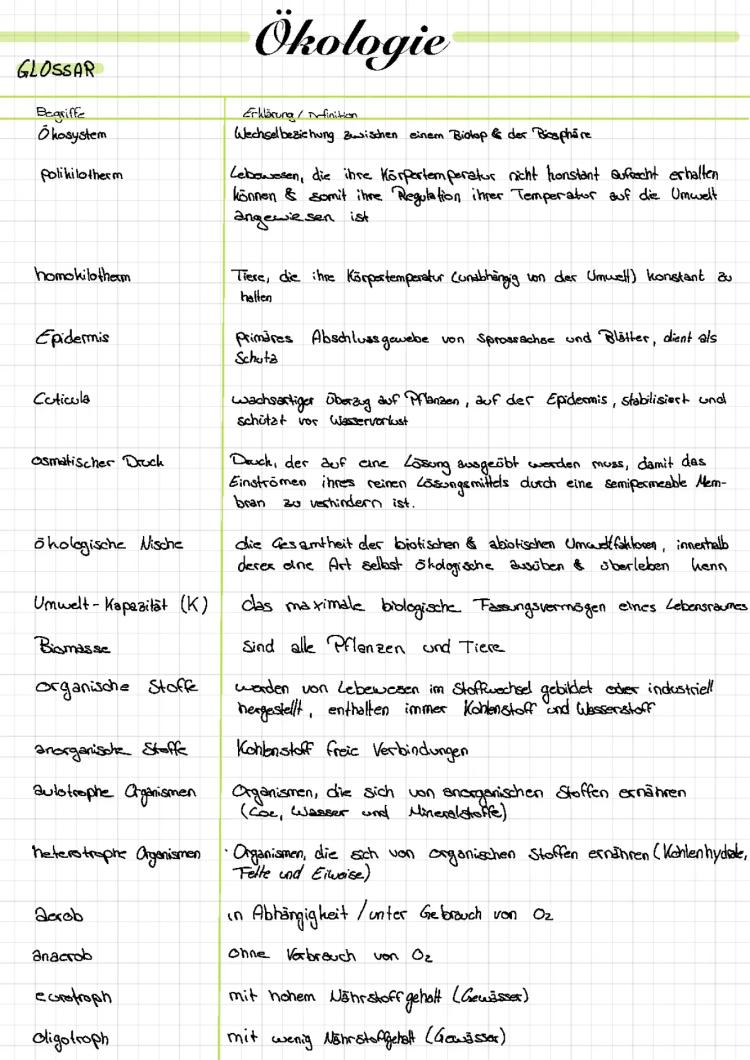 Ökologie
GLOSSAR
Begriffe Erklärung / Definition
Ökosystem Wechselbeziehung zwischen einem Biotop & der Biosphäre
polikilotherm Lebewesen, die ihre Körpertemperatur nicht konstant aufrecht erhalten
können & somit ihre Regulation ihrer Temperatur auf die Umwelt
angewiesen ist
homokilotherm Tiere, die ihre Körpertemperatur (unabhängig von der Umwelt) konstant zu
halten
Epidermis primäres Abschlussgewebe von Sprossachse und Blätter, dient als
Schutz
Cuticula wachsartiger Überzug auf Pflanzen, auf der Epidermis, stabilisiert und
schützt vor Wasserverlust
osmatischer Druck Druck, der auf eine Lösung ausgeübt werden muss, damit das
Einströmen ihres reinen Lösungsmittels durch eine semipermeable Mem-
bran zu verhindern ist.
ökologische Nische die Gesamtheit der biotischen & abiotischen Umweltfaktoren, innerhalb
derer eine Art selbst ökologische ausüben & überleben kann
Umwelt-Kapazität (K) das maximale biologische Fassungsvermögen eines Lebensraumes
Biomasse sind alle Pflanzen und Tiere
organische Stoffe werden von Lebewesen im Stoffwechsel gebildet oder industriell
hergestellt, enthalten immer Kohlenstoff und Wasserstoff
anorganische Stoffe Kohlenstoff freie Verbindungen
autotrophe Organismen Organismen, die sich von anorganischen Stoffen ernähren
(Co2, Wasser und Mineralstoffe)
heterotrophe Organismen · Organismen, die sich von organischen Stoffen ernähren (Kohlenhydrate,
Fette und Eiweise)
aerob in Abhängigkeit / unter Gebrauch von O2
anaerob ohne Verbrauch von O2
eurotroph mit hohem Nährstoffgehalt (Gewässer)
oligotroph mit wenig Nährstoffgehalt (Gewässer)